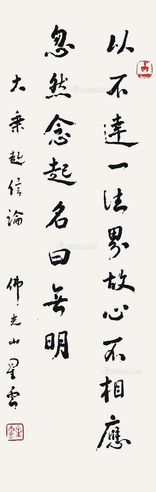 以不達一法界故心不相應
忽然念起名曰無明
大乘起信論
佛光山星雲